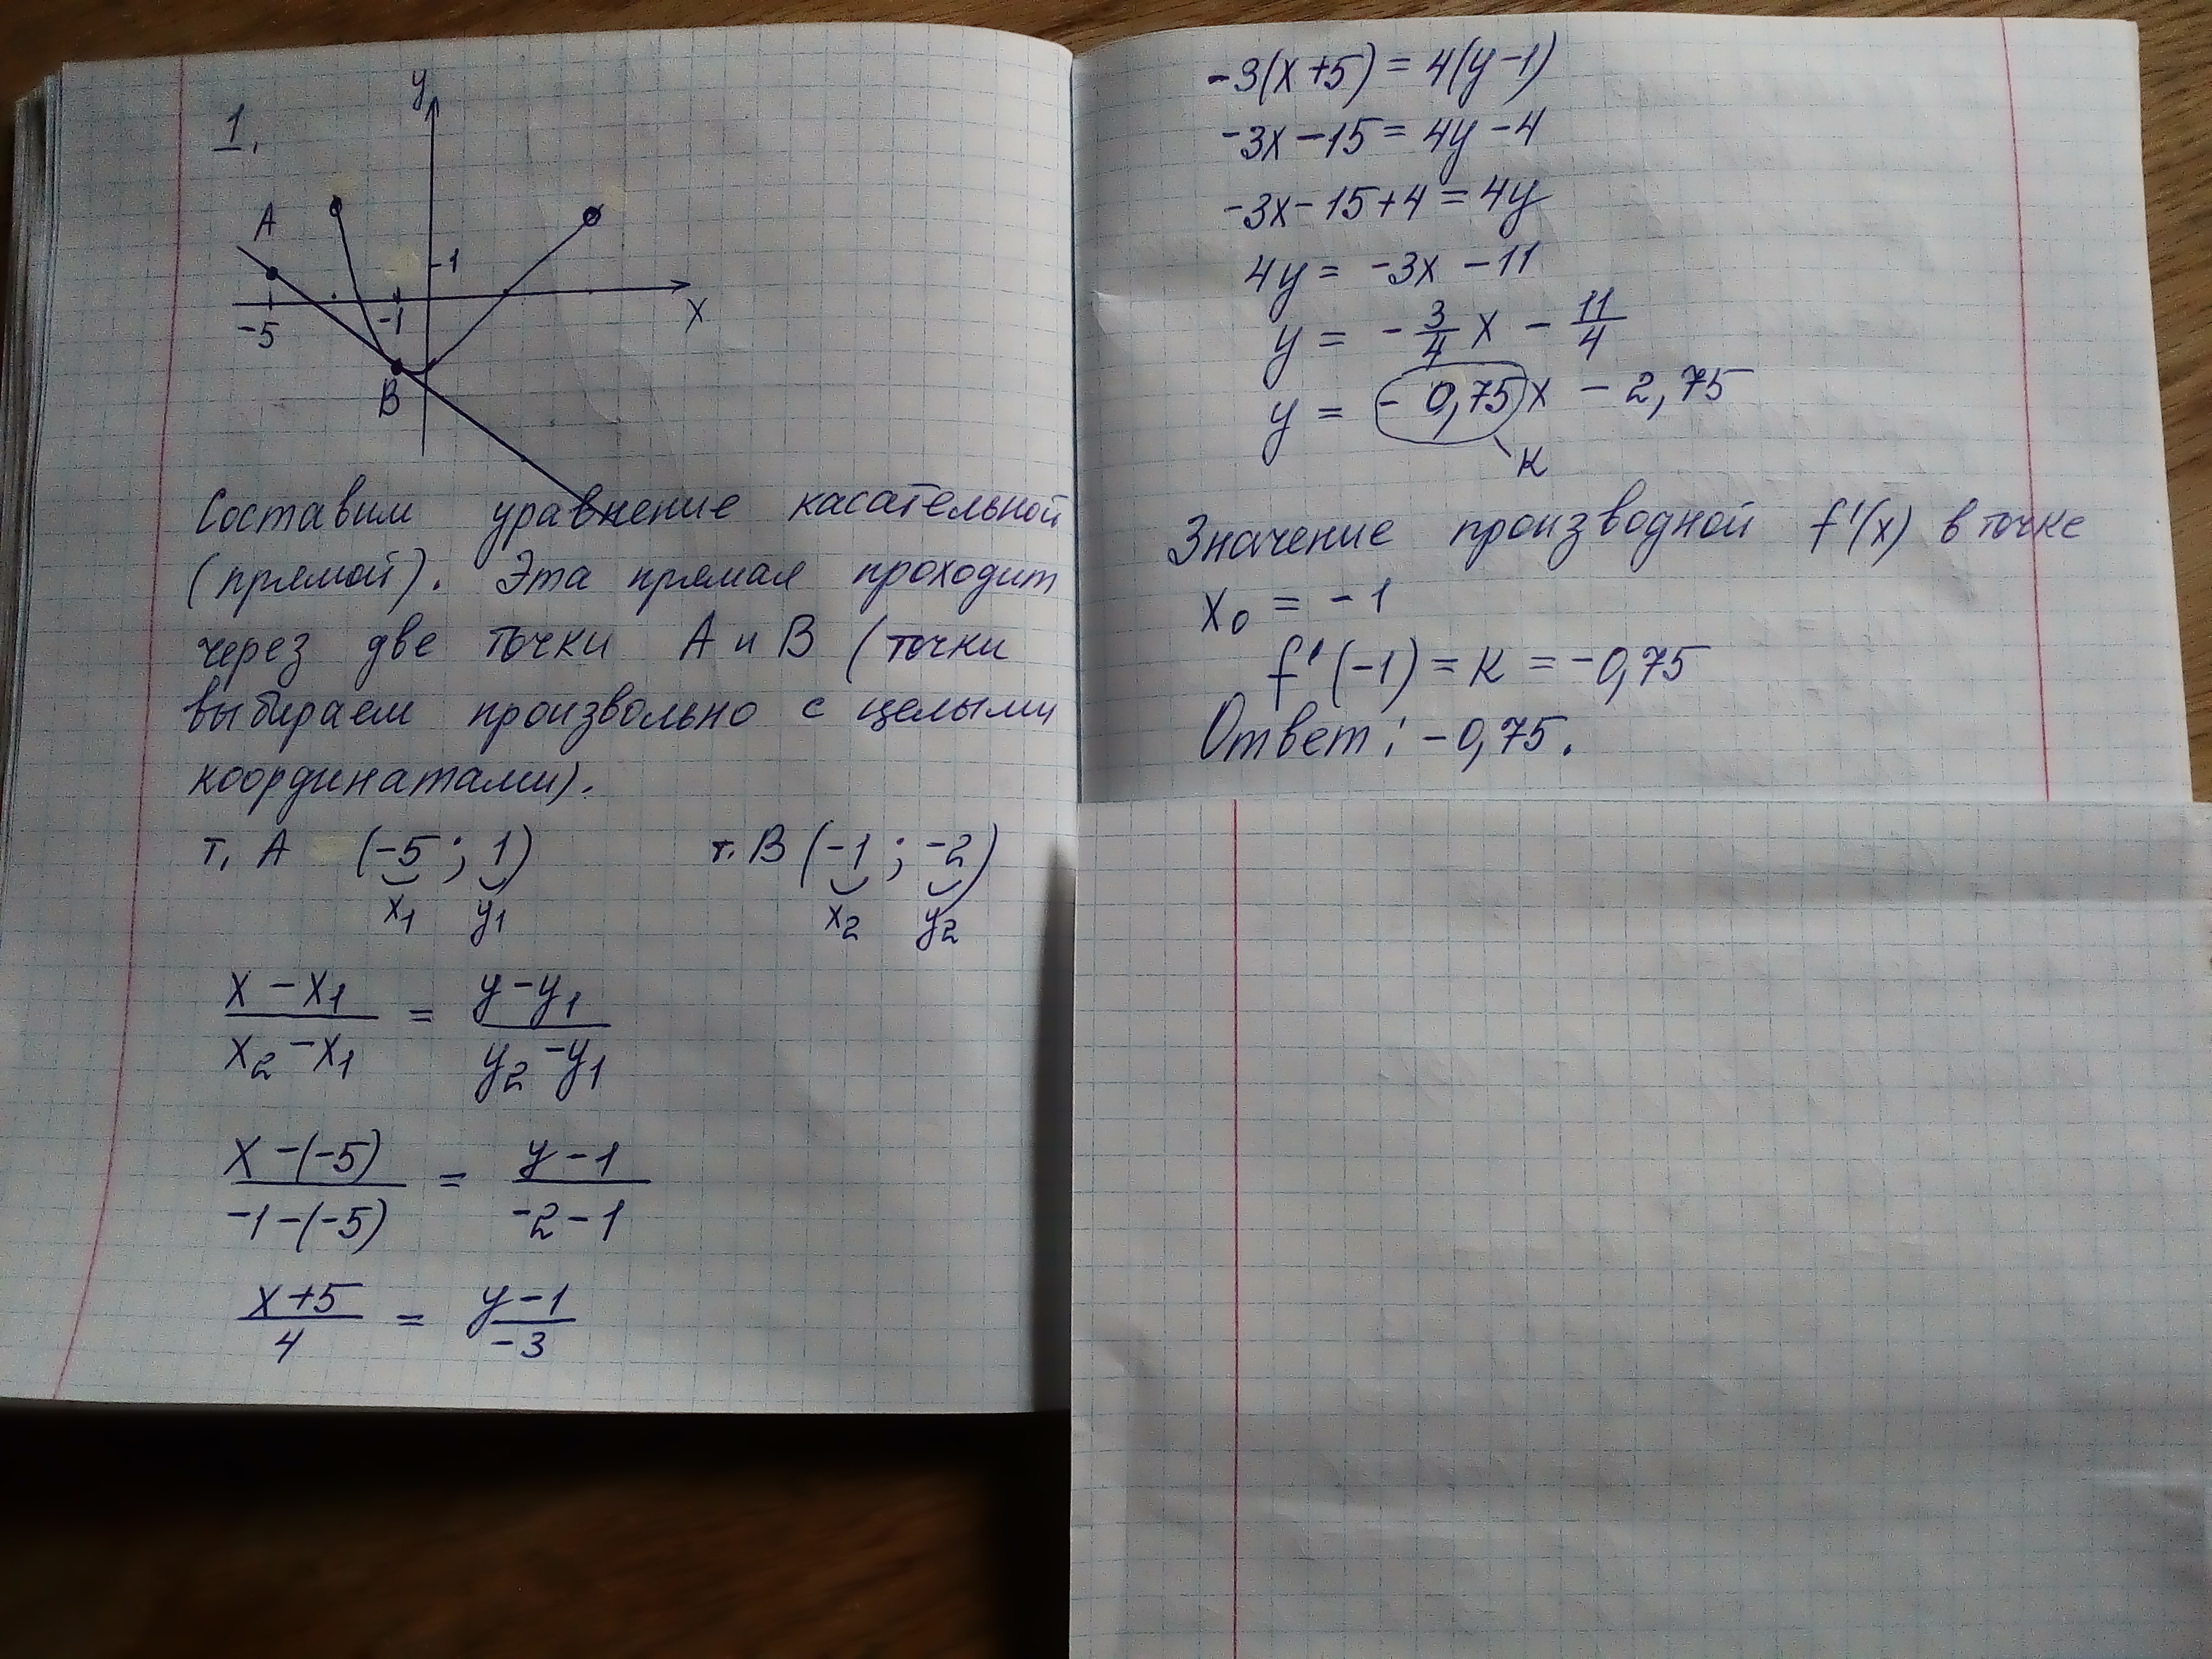 1.
y
A
1
-5
-1
x
B
Составим уравнение касательной
(прямой). Эта прямая проходит
через две точки А и В (точки
выбираем произвольно с целыми
координатами).
т. А (-5; 1) т. В (-1; -2)
x₁ y₁ x₂ y₂
x - x₁ / x₂ - x₁ = y - y₁ / y₂ - y₁
x - (-5) / -1 - (-5) = y - 1 / -2 - 1
x + 5 / 4 = y - 1 / -3
-3(x+5) = 4(y-1)
-3x - 15 = 4y - 4
-3x - 15 + 4 = 4y
4y = -3x - 11
y = - 3/4 x - 11/4
y = - 0,75x - 2,75
к
Значение производной f'(x) в точке
x₀ = -1
f'(-1) = к = -0,75
Ответ: -0,75.